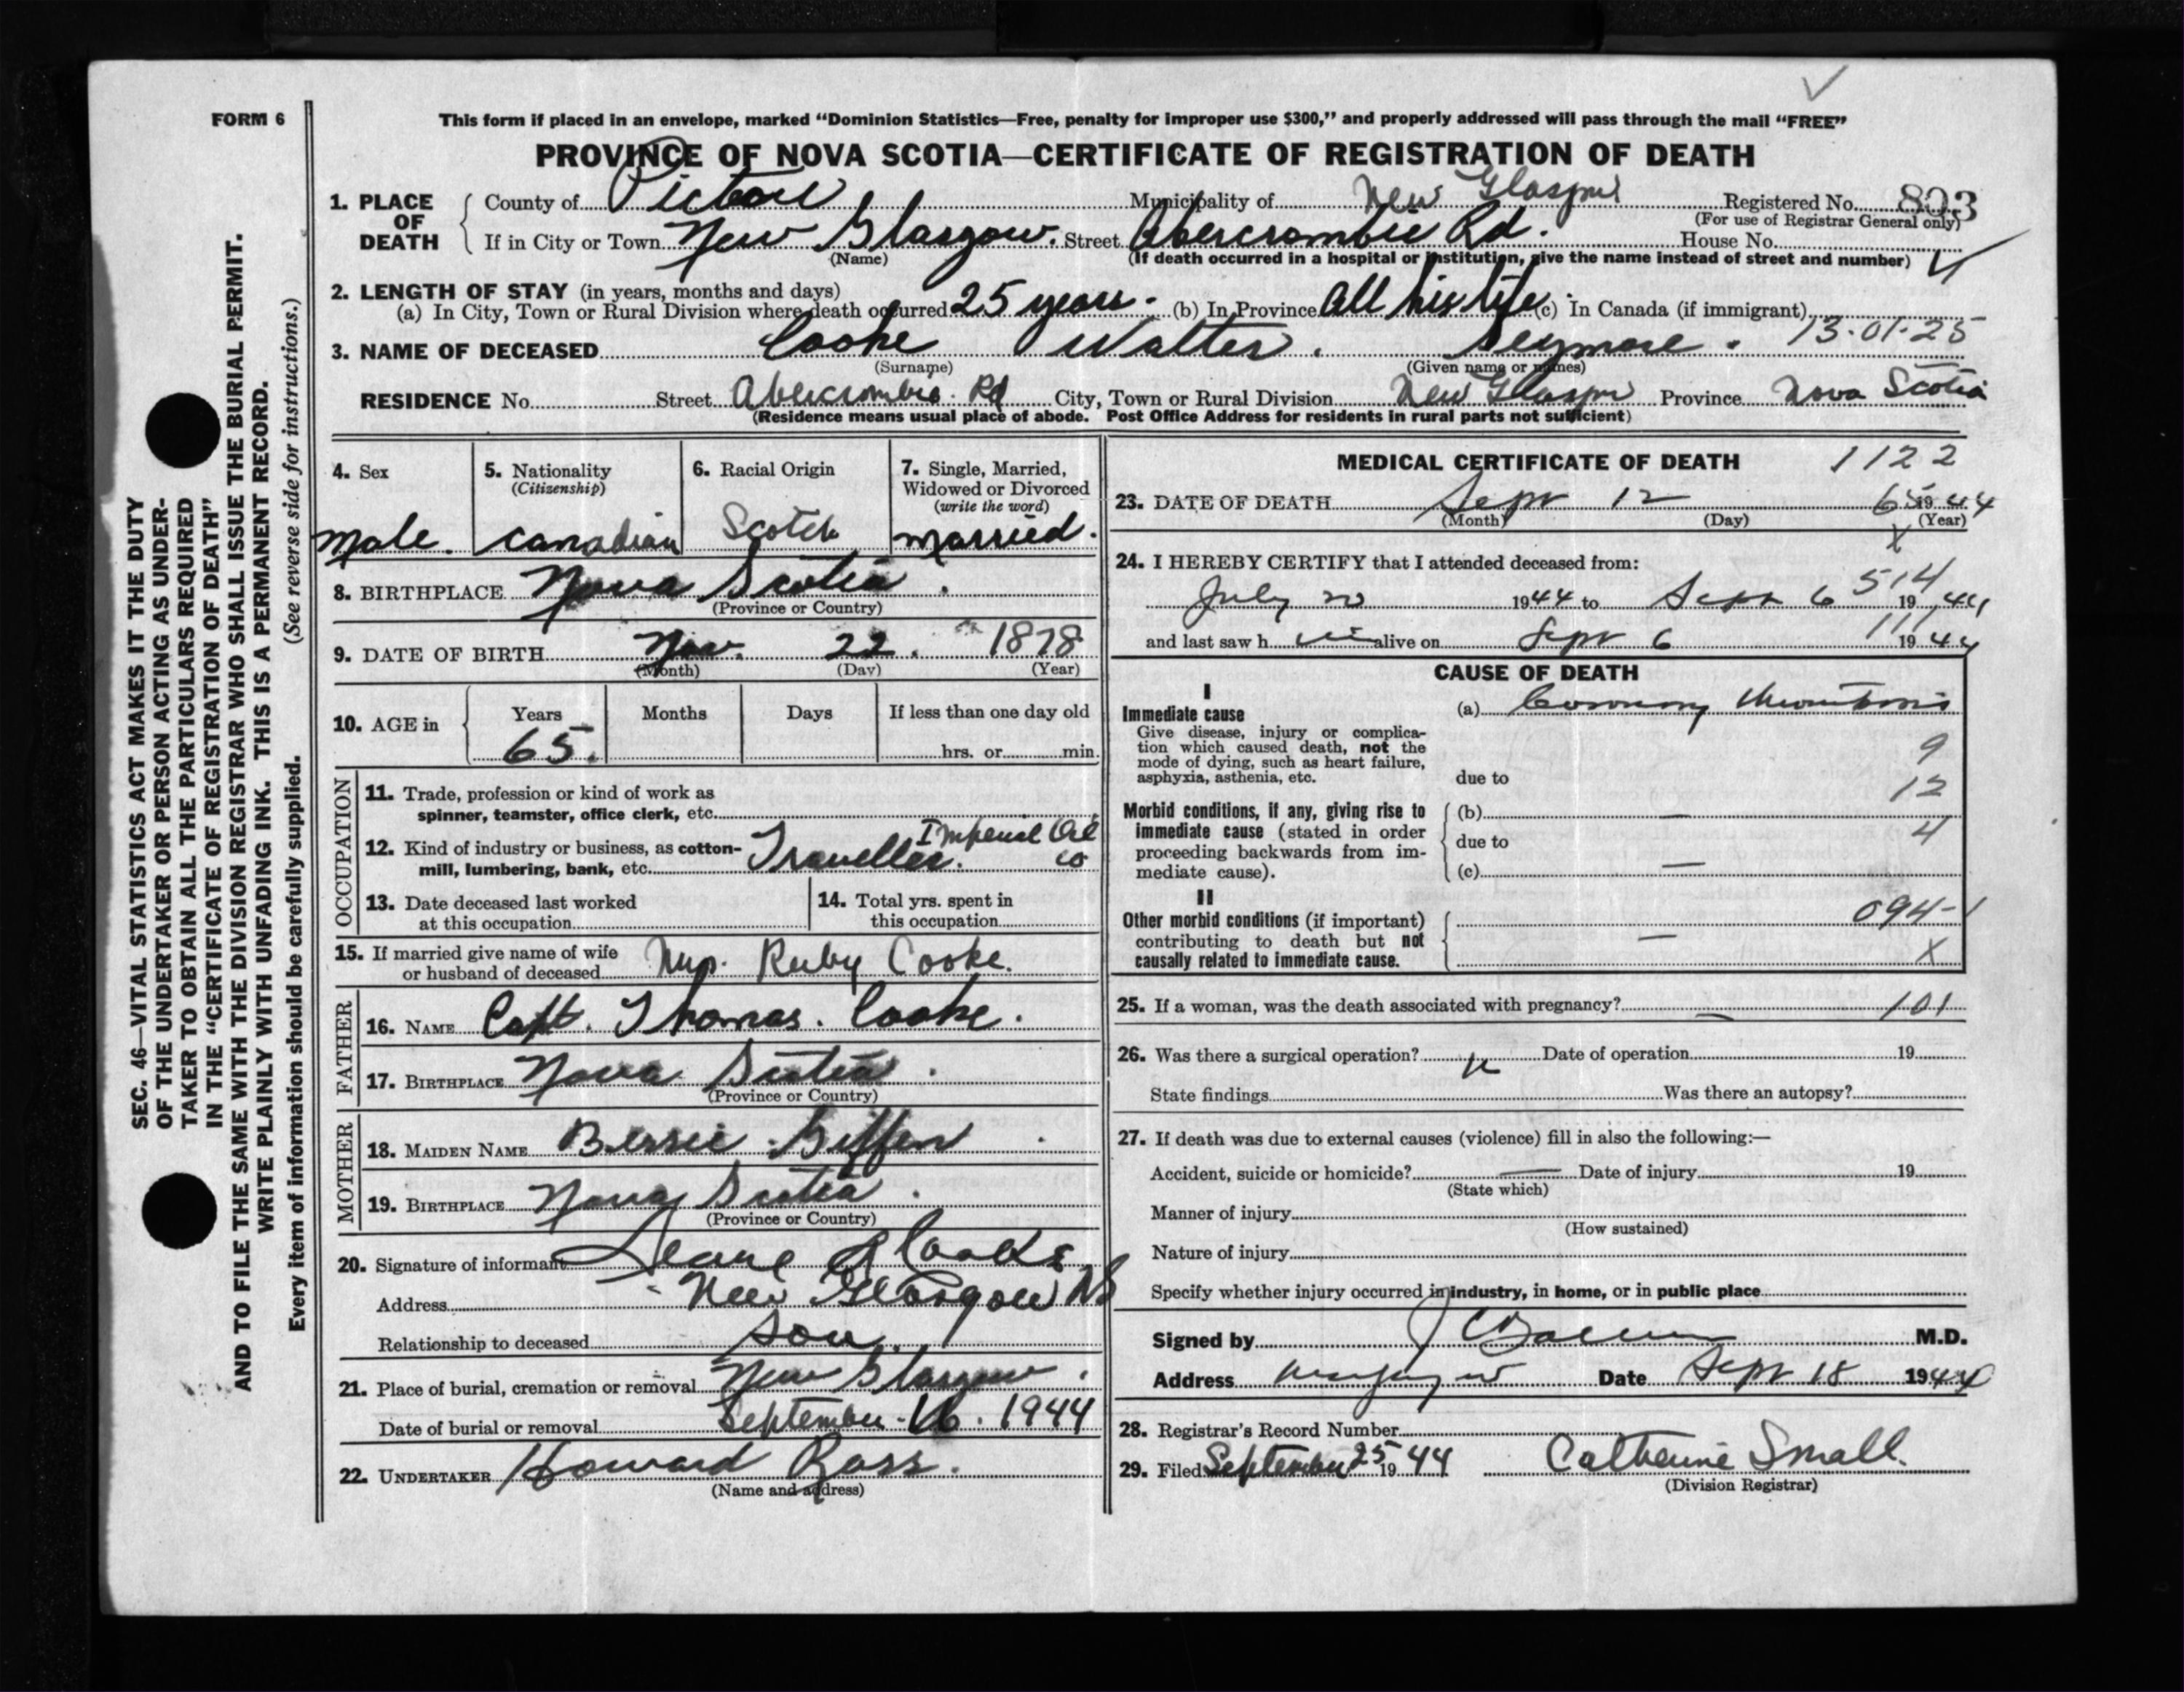 FORM 6
This form if placed in an envelope, marked “Dominion Statistics—Free, penalty for improper use $300,” and properly addressed will pass through the mail “FREE”
PROVINCE OF NOVA SCOTIA—CERTIFICATE OF REGISTRATION OF DEATH
1. PLACE OF DEATH
County of Pictou Municipality of New Glasgow Registered No. 803
(For use of Registrar General only)
If in City or Town New Glasgow. Street Abercrombie Rd. House No.
(Name) (If death occurred in a hospital or institution, give the name instead of street and number)
2. LENGTH OF STAY (in years, months and days)
(a) In City, Town or Rural Division where death occurred 25 years. (b) In Province All his life. (c) In Canada (if immigrant)
3. NAME OF DECEASED Cooke Walter. Seymore. 13-01-25
(Surname) (Given name or names)
RESIDENCE No. Street Abercrombie Rd City, Town or Rural Division New Glasgow Province Nova Scotia
(Residence means usual place of abode. Post Office Address for residents in rural parts not sufficient)
4. Sex
male.
5. Nationality
(Citizenship)
Canadian
6. Racial Origin
Scotch
7. Single, Married,
Widowed or Divorced
(write the word)
married.
8. BIRTHPLACE Nova Scotia.
(Province or Country)
9. DATE OF BIRTH Nov. 22. 1878
(Month) (Day) (Year)
10. AGE in
Years Months Days If less than one day old
65. hrs. or min.
OCCUPATION
11. Trade, profession or kind of work as
spinner, teamster, office clerk, etc.
12. Kind of industry or business, as cotton-
mill, lumbering, bank, etc. Traveller. Imperial Oil Co
13. Date deceased last worked
at this occupation
14. Total yrs. spent in
this occupation
15. If married give name of wife
or husband of deceased Mrs. Ruby Cooke.
FATHER
16. NAME Capt. Thomas. Cooke.
17. BIRTHPLACE Nova Scotia.
(Province or Country)
MOTHER
18. MAIDEN NAME Bessie Giffen.
19. BIRTHPLACE Nova Scotia.
(Province or Country)
20. Signature of informant Cooke
Address New Glasgow NS
Relationship to deceased son
21. Place of burial, cremation or removal New Glasgow.
Date of burial or removal September 16. 1944
22. UNDERTAKER Howard Ross.
(Name and address)
MEDICAL CERTIFICATE OF DEATH 1122
23. DATE OF DEATH Sept 12 65 1944
(Month) (Day) (Year)
x
24. I HEREBY CERTIFY that I attended deceased from:
514
July 20 1944 to Sept 6 1944
and last saw h im alive on Sept 6 111 1944
CAUSE OF DEATH
I
Immediate cause
Give disease, injury or complica-
tion which caused death, not the
mode of dying, such as heart failure,
asphyxia, asthenia, etc.
(a) Coronary thrombosis
9
due to
12
Morbid conditions, if any, giving rise to
immediate cause (stated in order
proceeding backwards from im-
mediate cause).
(b) —
due to 4
(c) —
II
Other morbid conditions (if important)
contributing to death but not
causally related to immediate cause.
094-1
—
X
25. If a woman, was the death associated with pregnancy? — 101
26. Was there a surgical operation? Date of operation 19
State findings Was there an autopsy?
27. If death was due to external causes (violence) fill in also the following:—
Accident, suicide or homicide? — Date of injury 19
(State which)
Manner of injury
(How sustained)
Nature of injury
Specify whether injury occurred in industry, in home, or in public place
Signed by M.D.
Address Date Sept 18 1944
28. Registrar's Record Number
29. Filed September 25 1944 Catherine Small.
(Division Registrar)
SEC. 46—VITAL STATISTICS ACT MAKES IT THE DUTY
OF THE UNDERTAKER OR PERSON ACTING AS UNDER-
TAKER TO OBTAIN ALL THE PARTICULARS REQUIRED
IN THE “CERTIFICATE OF REGISTRATION OF DEATH”
AND TO FILE THE SAME WITH THE DIVISION REGISTRAR WHO SHALL ISSUE THE BURIAL PERMIT.
WRITE PLAINLY WITH UNFADING INK. THIS IS A PERMANENT RECORD.
Every item of information should be carefully supplied. (See reverse side for instructions.)